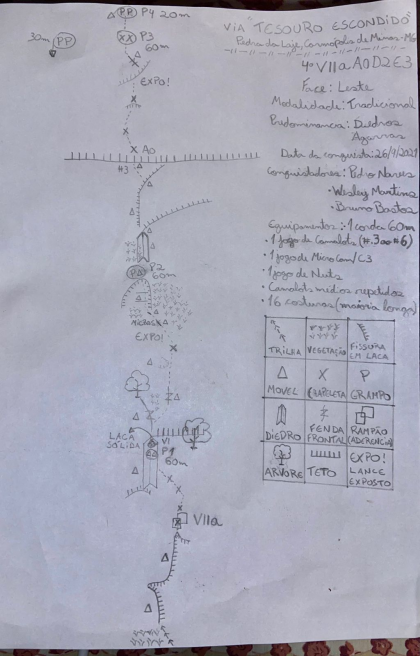 VIA "TESOURO ESCONDIDO"
Pedra da Laje, Carmópolis de Minas-MG
4º VIIa A0 D2 E3
Face: Leste
Modalidade: Tradicional
Predominancia: Diedros
Agarras
Data da conquista: 26/9/2021
Conquistadores: Pedro Naves
• Wesley Martins
• Bruno Bastos
Equipamentos: • 1 corda 60m
• 1 jogo de Camalots (#.3 ao #6)
• 1 jogo de Micro Cam/C3
• 1 jogo de Nuts
• Camalots médios repetidos
• 16 costuras (maioria longas)
TRILHA
VEGETAÇÃO
FISSURA
EM LACA
MOVEL
CHAPELETA
GRAMPO
DIEDRO
FENDA
FRONTAL
RAMPÃO
(ADERENCIA)
ARVORE
TETO
EXPO!
LANCE
EXPOSTO
PP P4 20m
30m PP
XX P3
60m
EXPO!
A0
#3
P2
60m
MICROS
EXPO!
LACA
SOLIDA
VI
P1
60m
VIIa